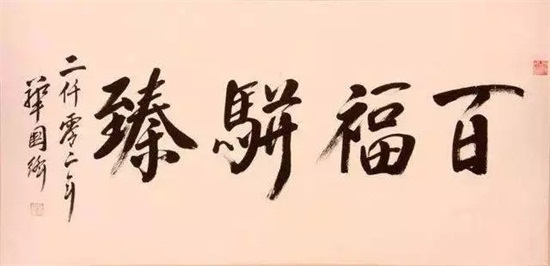 百福駢臻
二仟零二年
華国鋒